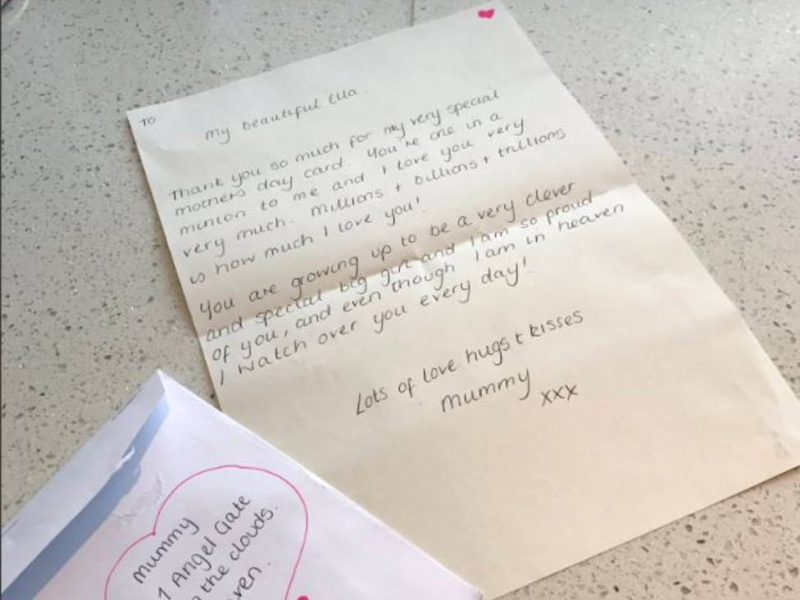 TO
My beautiful Ella
Thank you so much for my very special
mothers day card. You're one in a
million to me and I love you very
very much. Millions + billions + trillions
is how much I love you!
You are growing up to be a very clever
and special big girl and I am so proud
of you, and even though I am in heaven
I watch over you every day!
Lots of love hugs + kisses
Mummy xxx
Mummy
1 Angel Gate
the clouds.